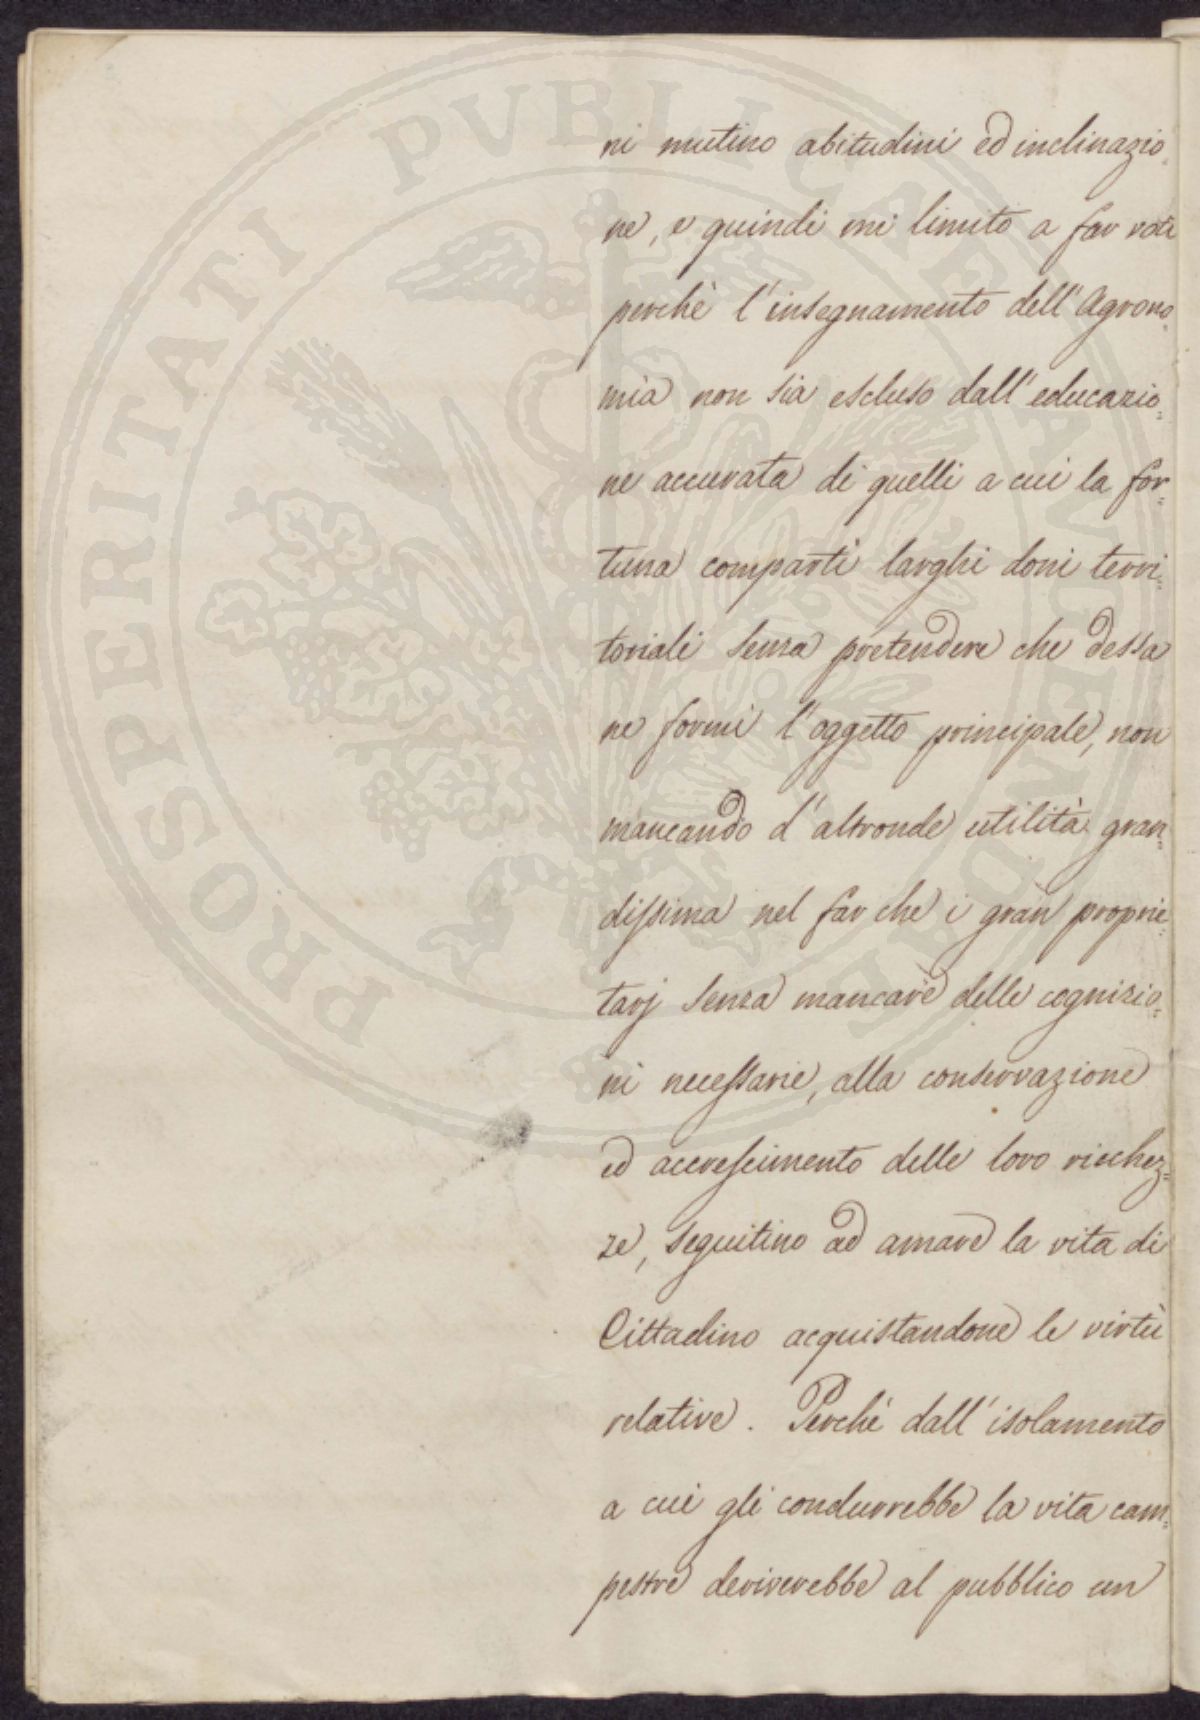 PROSPERITATI PUBLICAE AUGENDAE
ni mutino abitudini ed inclinazio=
ne, e quindi mi limito a far voti
perchè l'insegnamento dell'Agrono=
mia non sia escluso dall'educazio=
ne accurata di quelli a cui la for=
tuna compartì larghi doni terri=
toriali senza pretendere che dessa
ne formi l'oggetto principale, non
mancando d'altronde utilità gran=
dissima nel far che i gran proprie=
tarj senza mancare delle cognizio=
ni necessarie, alla conservazione
ed accrescimento delle loro ricchez=
ze, seguitino ad amare la vita di
Cittadino acquistandone le virtù
relative. Perchè dall'isolamento
a cui gli condurrebbe la vita cam=
pestre deriverebbe al pubblico un